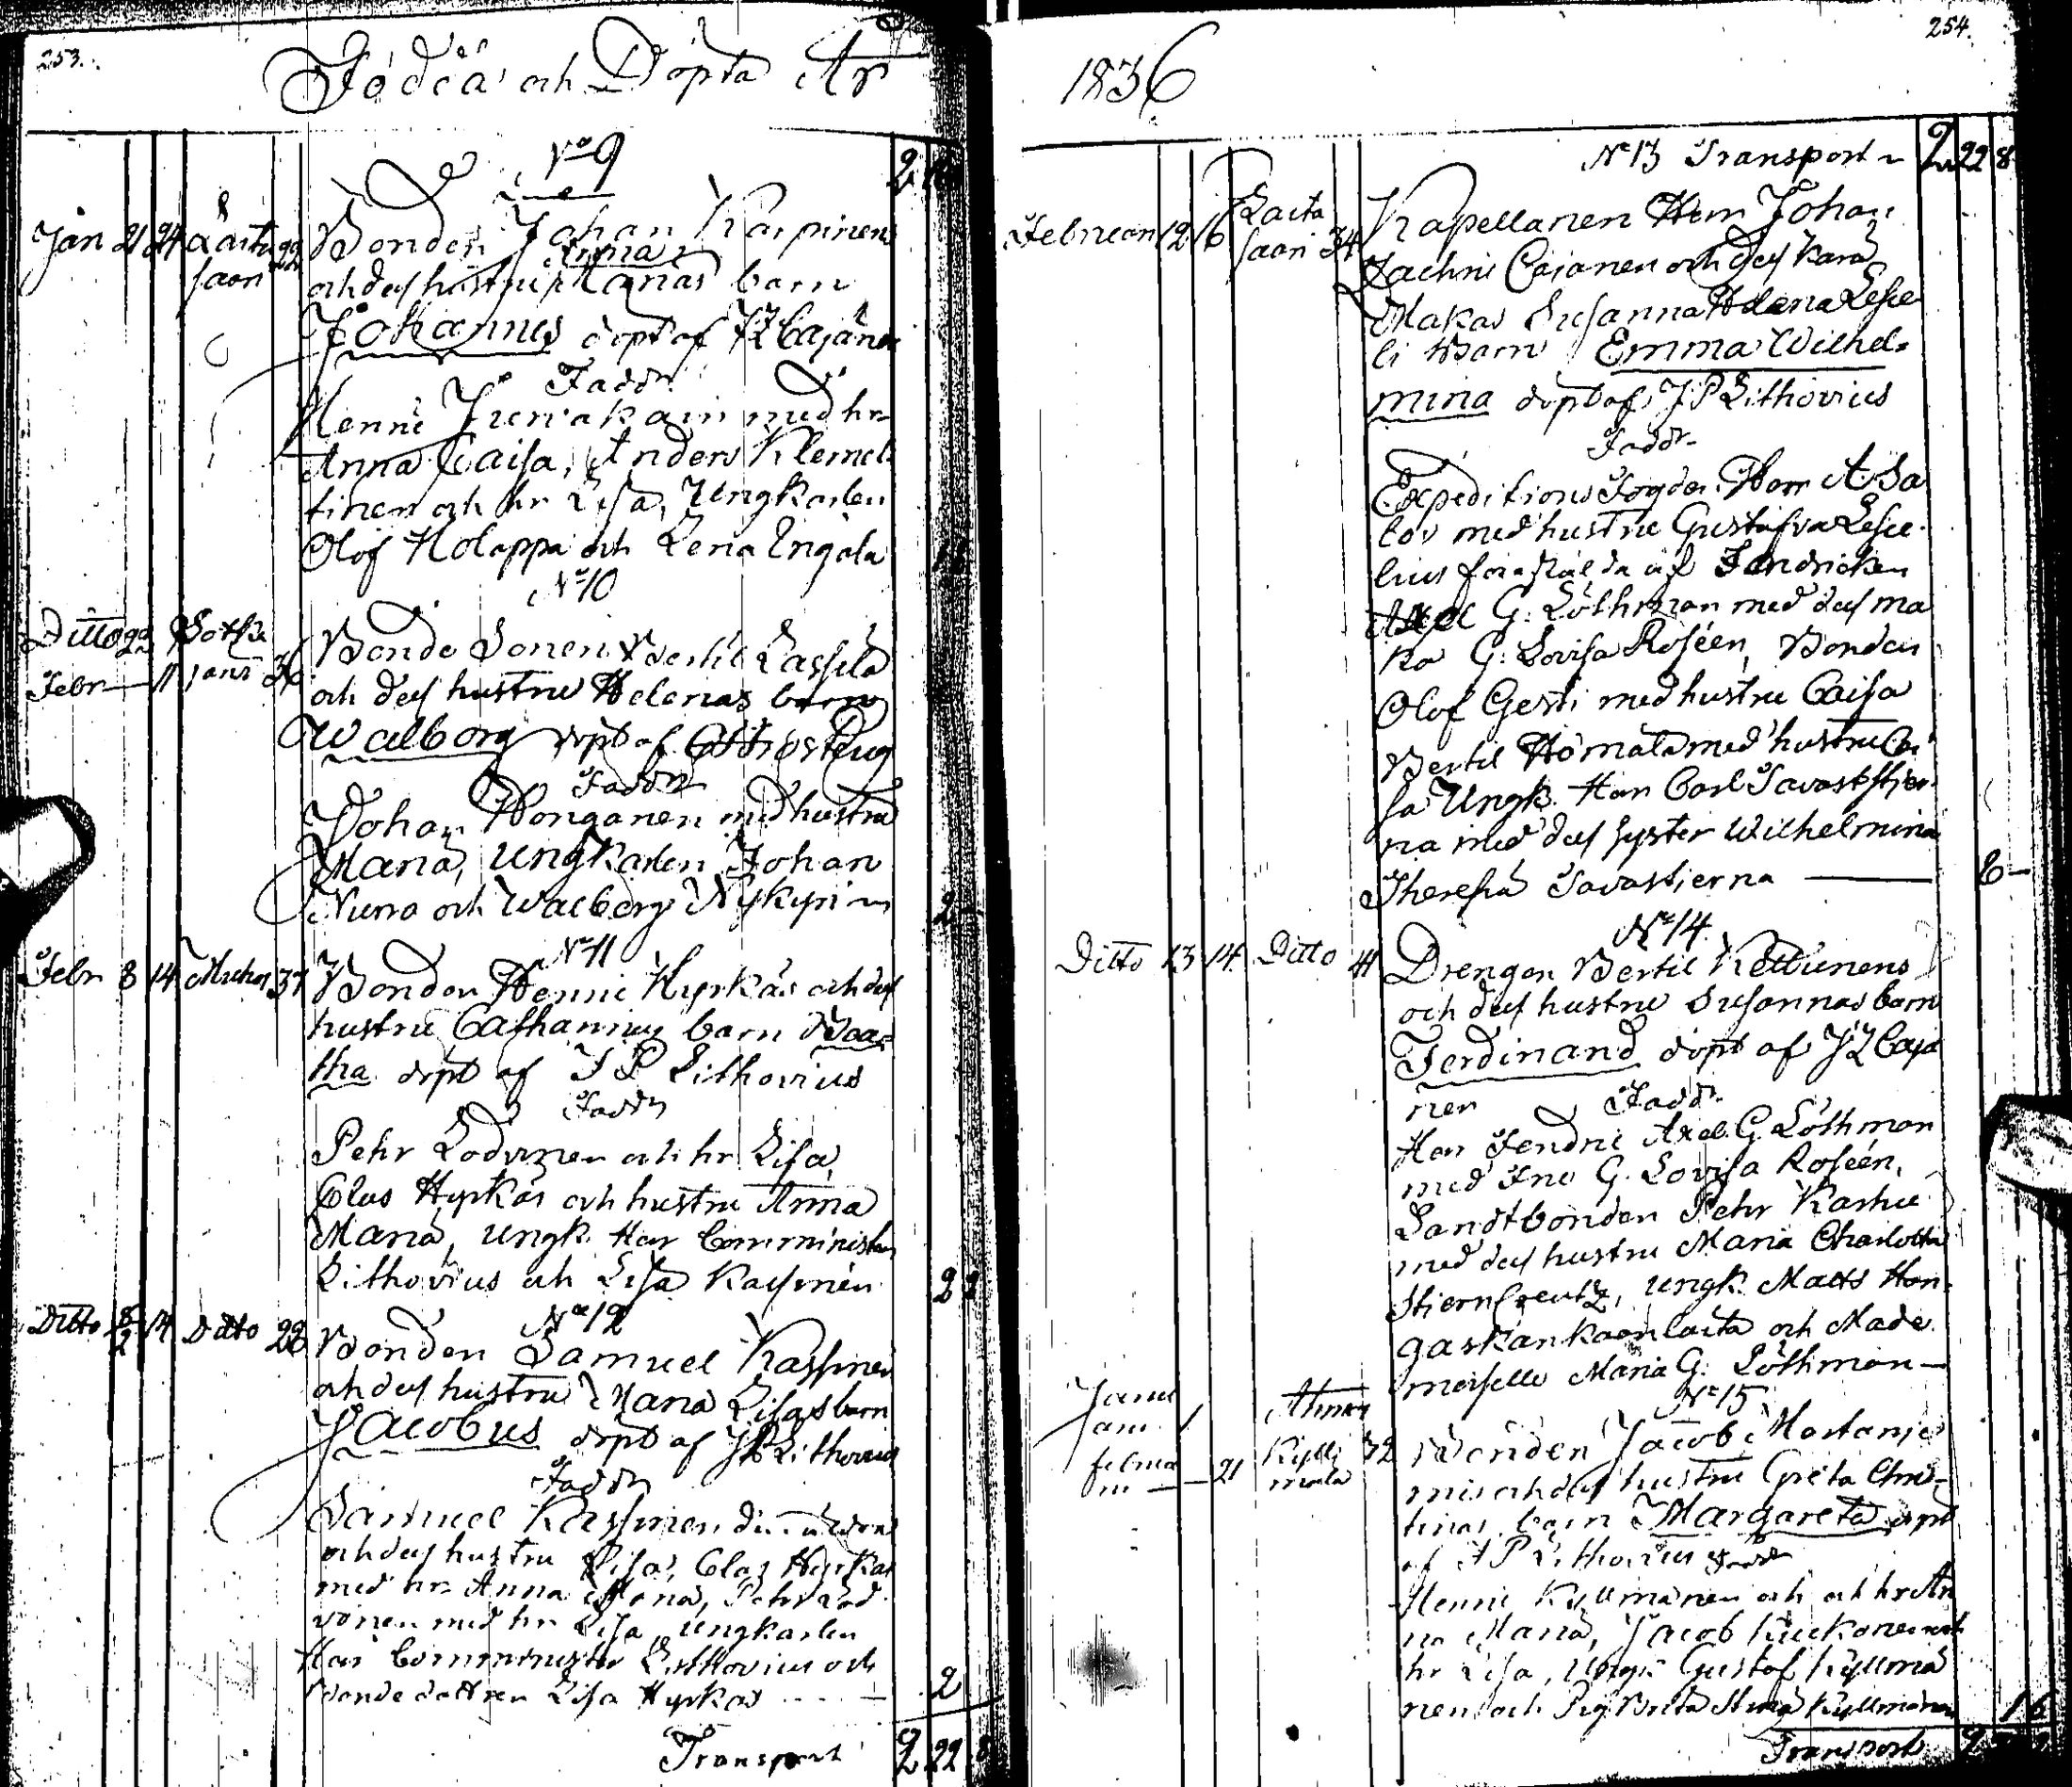 253.
Födde och Döpta År
No 9
Jan 21 24 Laitasaari 22
Bonden Johan Karpinens
Anna
och dess hustru Marias barn
Johannes döpt af J Z Cajanen
Faddr
Henric med hr
Anna Caisa, Anders Klemet-
tinen och hr Lisa, Ungkarlen
Olof Holappa och Lena Ingala
No 10
Ditto 29
Febr 11
36
Bonde Sonen Bertil Lassila
och dess hustru Helenas barn
Walborg döpt af
Faddr
Johan Honganen med hustru
Maria, Ungkarlen Johan
Nurra och Walborg Nykyri
2
No 11
Febr 8 14 Muhos 37
Bonden Henric Hyrkäs och dess
hustru Catharinas barn Beat-
tha döpt af J P Lithovius
Faddr
Pehr Lodvonen och hr Lisa,
Clas Hyrkäs och hustru Anna
Maria, Ungk. Herr Comminister
Lithovius och Lisa Kassinen
2
No 12
Ditto 14 Ditto 22
Bonden Samuel Kassinen
och dess hustru Maria Lisas barn
Jacobus döpt af J P Lithovius
Faddr
Samuel Kassinen
och dess hustru Lisa, Clas Hyrkas
med hr Anna Maria, Pehr Lod
vonen med hr Lisa, Ungkarlen
Herr Comminister Lithovius och
Bonde dottren Lisa Hyrkas
2
Transport 2 22 8
254.
1836
No 13 Transport 2 22 8
Februari 12 16 Laitasaari 34
Kapellanen Herr Johan
Zachris Cajanen och dess kära
Makas Susanna Helena Lesce
li Barn Emma Wilhel-
mina döpt af J P Lithovius
Faddr
Expeditions Fogden Herr A Sa
lov med hustru Gustafva Lesce-
lius förestälda af Fendricken
Axel G. Löthman med dess ma
ka G: Lovisa Roséen, Bonden
Olof Gesti med hustru Caisa
Bertil Homala med hustru Cai
sa Ungk. Herr Carl Savaststjer-
na med dess syster Wilhelmina
Theresia Savastierna
6
No 14
Ditto 13 14 Ditto 41
Drengen Bertil Kettunens
och dess hustru Susannas barn
Ferdinand döpt af J Z Caja
nen Faddr
Herr Fendric Axel G. Löthman
med Fru G. Lovisa Roséen,
Landtbonden Pehr Karhu
med dess hustru Maria Charlotta
StiernCreutz, Ungk. Matts Hon-
gaskankaanlaita och Made
moiselle Maria G. Löthman
No 15
Janu
ari 1
februa
ri 21
Ahmas
Kylli
mala
32
Bonden Jacob
mis och dess hustru Greta Chris-
tinas barn Margareta döpt
af J P Lithovius Faddr
Henric Kyllmänen och och hr An
na Maria, Jacob
hr Lisa, Ungk Gustaf Kyllmä
nen och Pig Brita Anna Kyllmänen
16
Transport 2